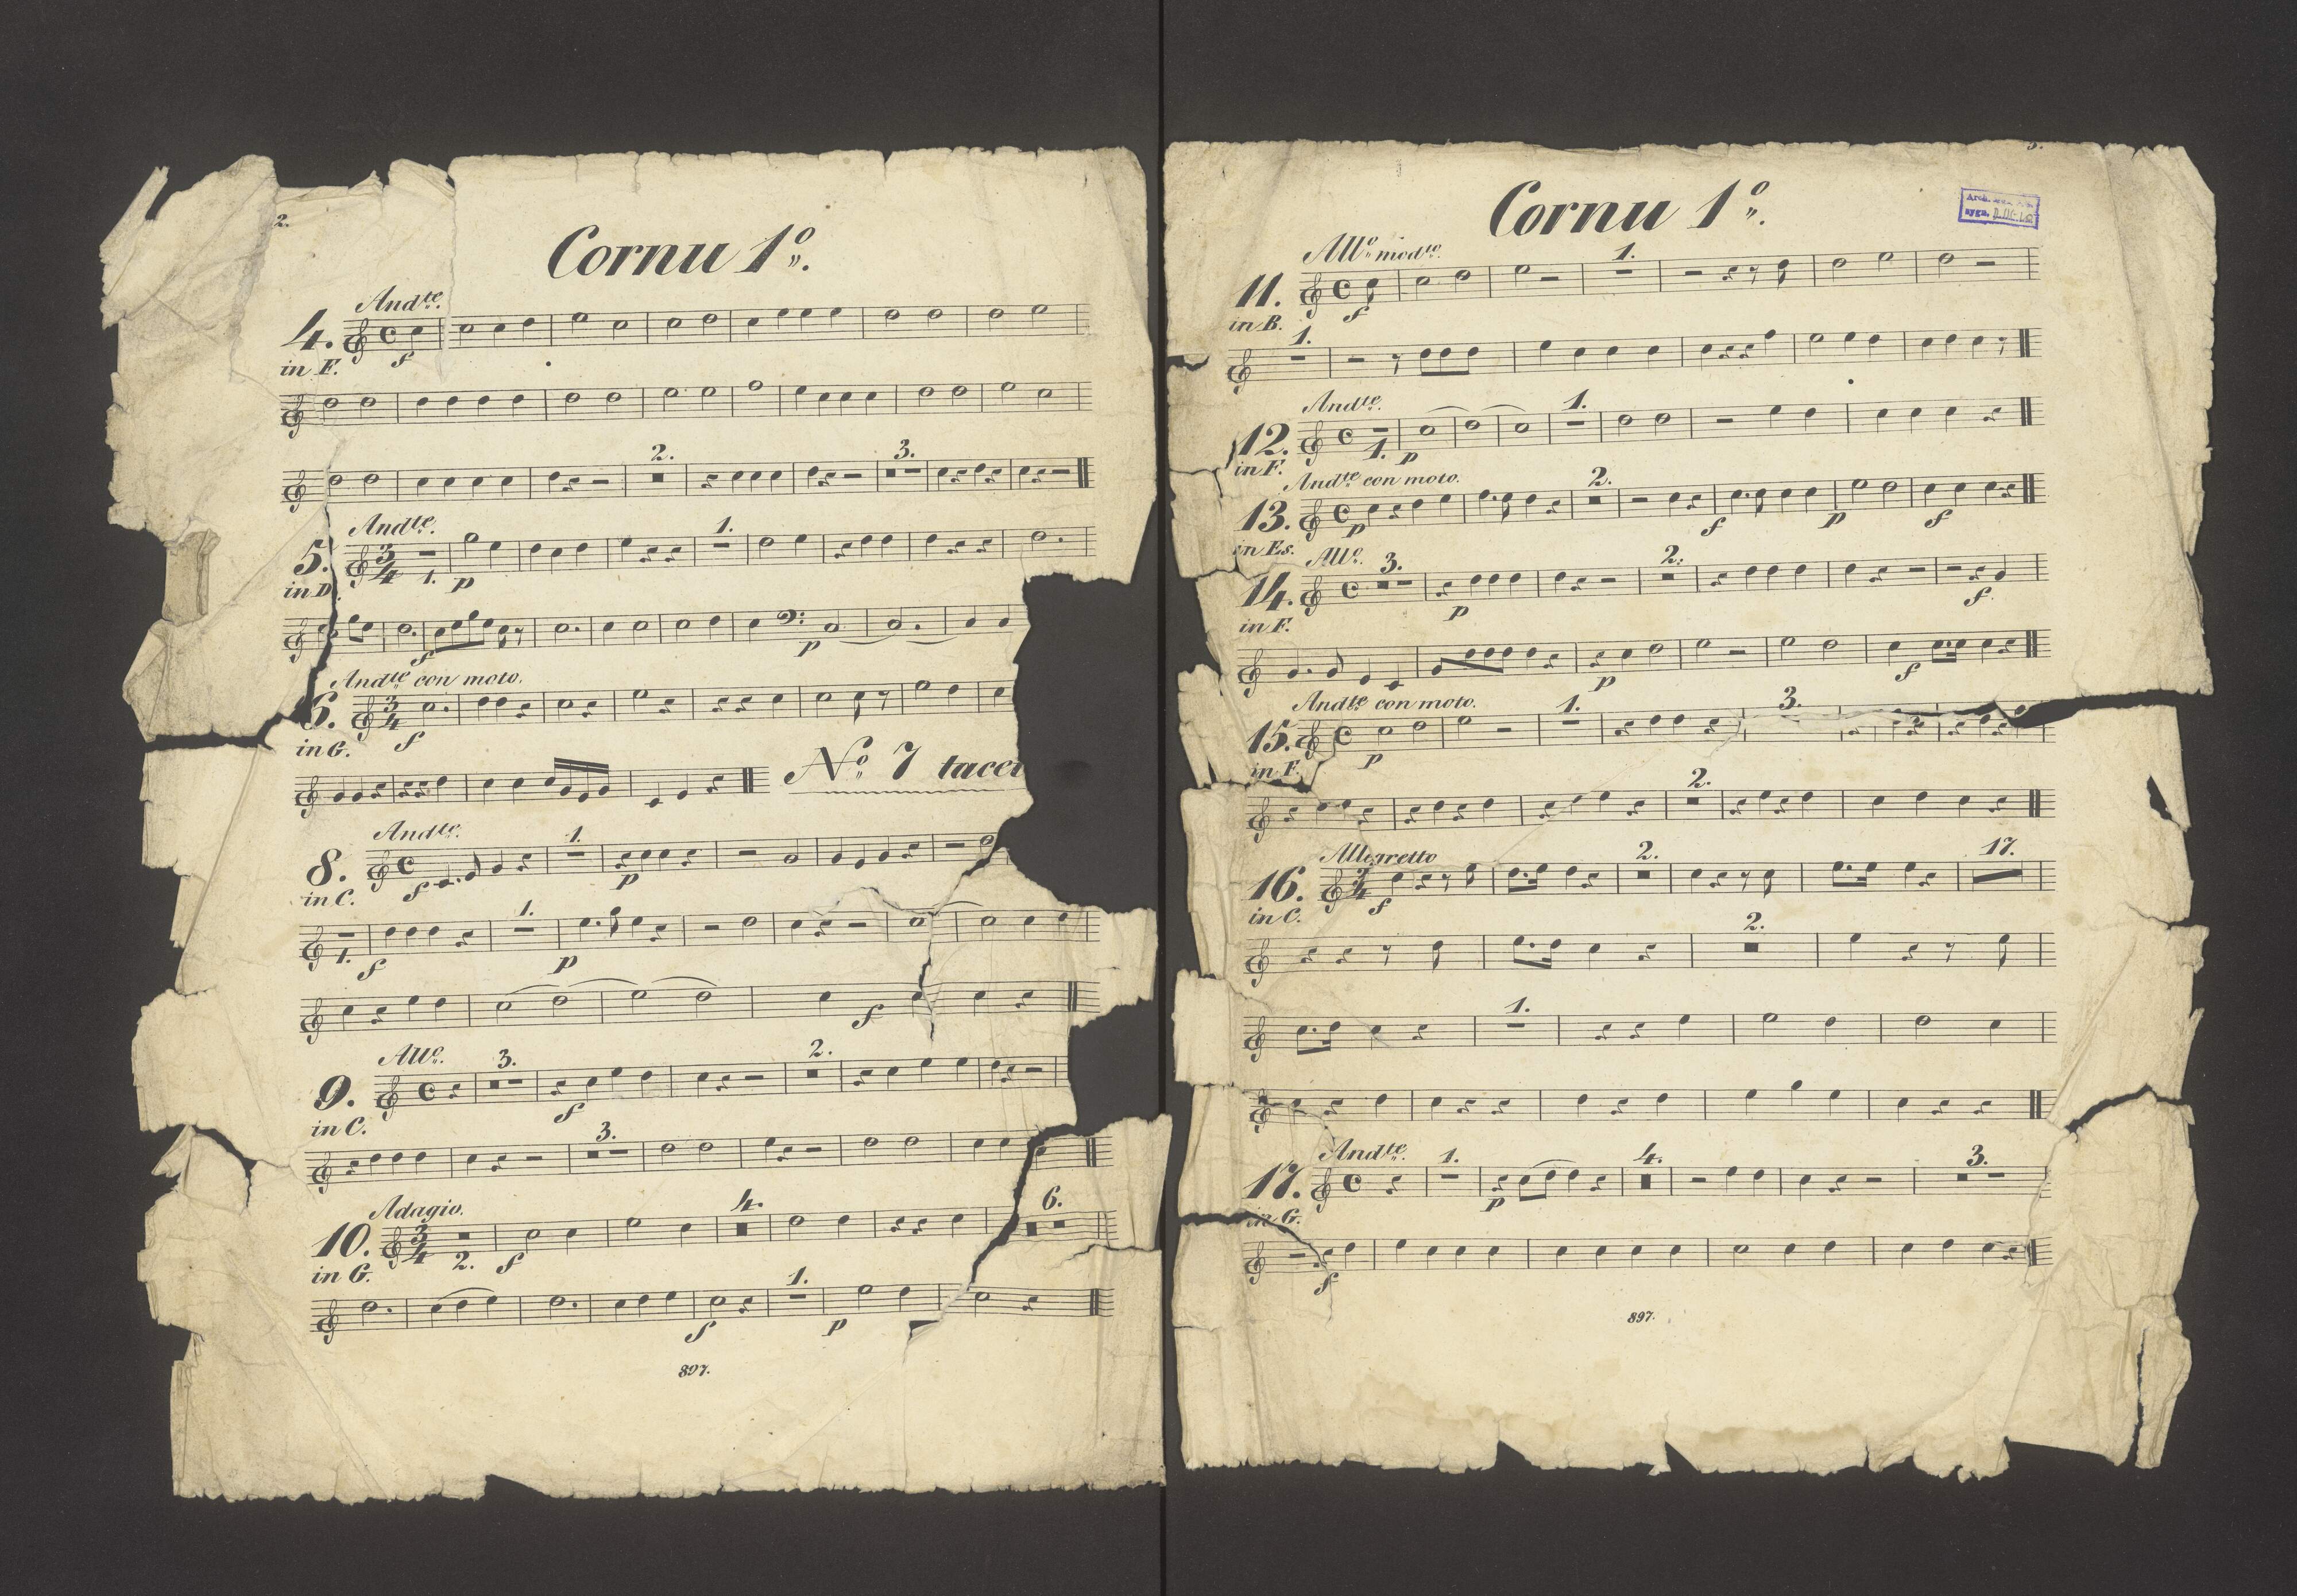 2.
Cornu 1º.
Andte.
4.
in F.
f
2.
3.
Andte.
5.
in D.
3/4
1.
p
1.
f
p
Andte con moto.
6.
in G.
3/4
f
Nº 7
Andte.
8.
in C.
f
1.
p
1.
f
1.
p
f
Allo.
9.
in C.
3.
f
2.
3.
Adagio.
10.
in G.
3/4
2.
f
4.
6.
f
1.
p
897.
Cornu 1º.
Allo modto.
11.
in B.
f
1.
1.
Andte.
12.
in F.
1.
p
1.
Andte con moto.
13.
in Es.
p
2.
f
p
f
Allo.
14.
in F.
3.
p
2.
f
p
f
Andte con moto.
15.
in F.
p
1.
3.
2.
Allegretto
16.
in C.
f
2.
17.
2.
1.
Andte.
17.
in G.
1.
p
4.
3.
f
897.